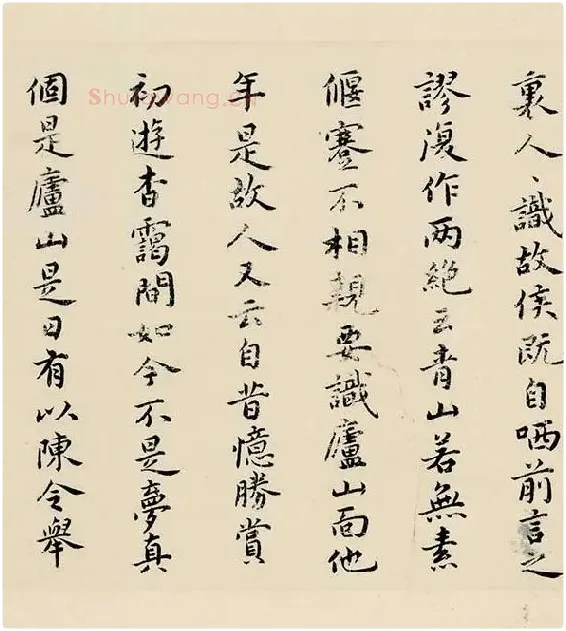 裏人〻識故侯既自哂前言之
謬復作两絕云青山若無素
偃蹇不相親要識廬山面他
年是故人又云自昔憶勝賞
初遊杳靄間如今不是夢真
個是廬山是日有以陳令舉